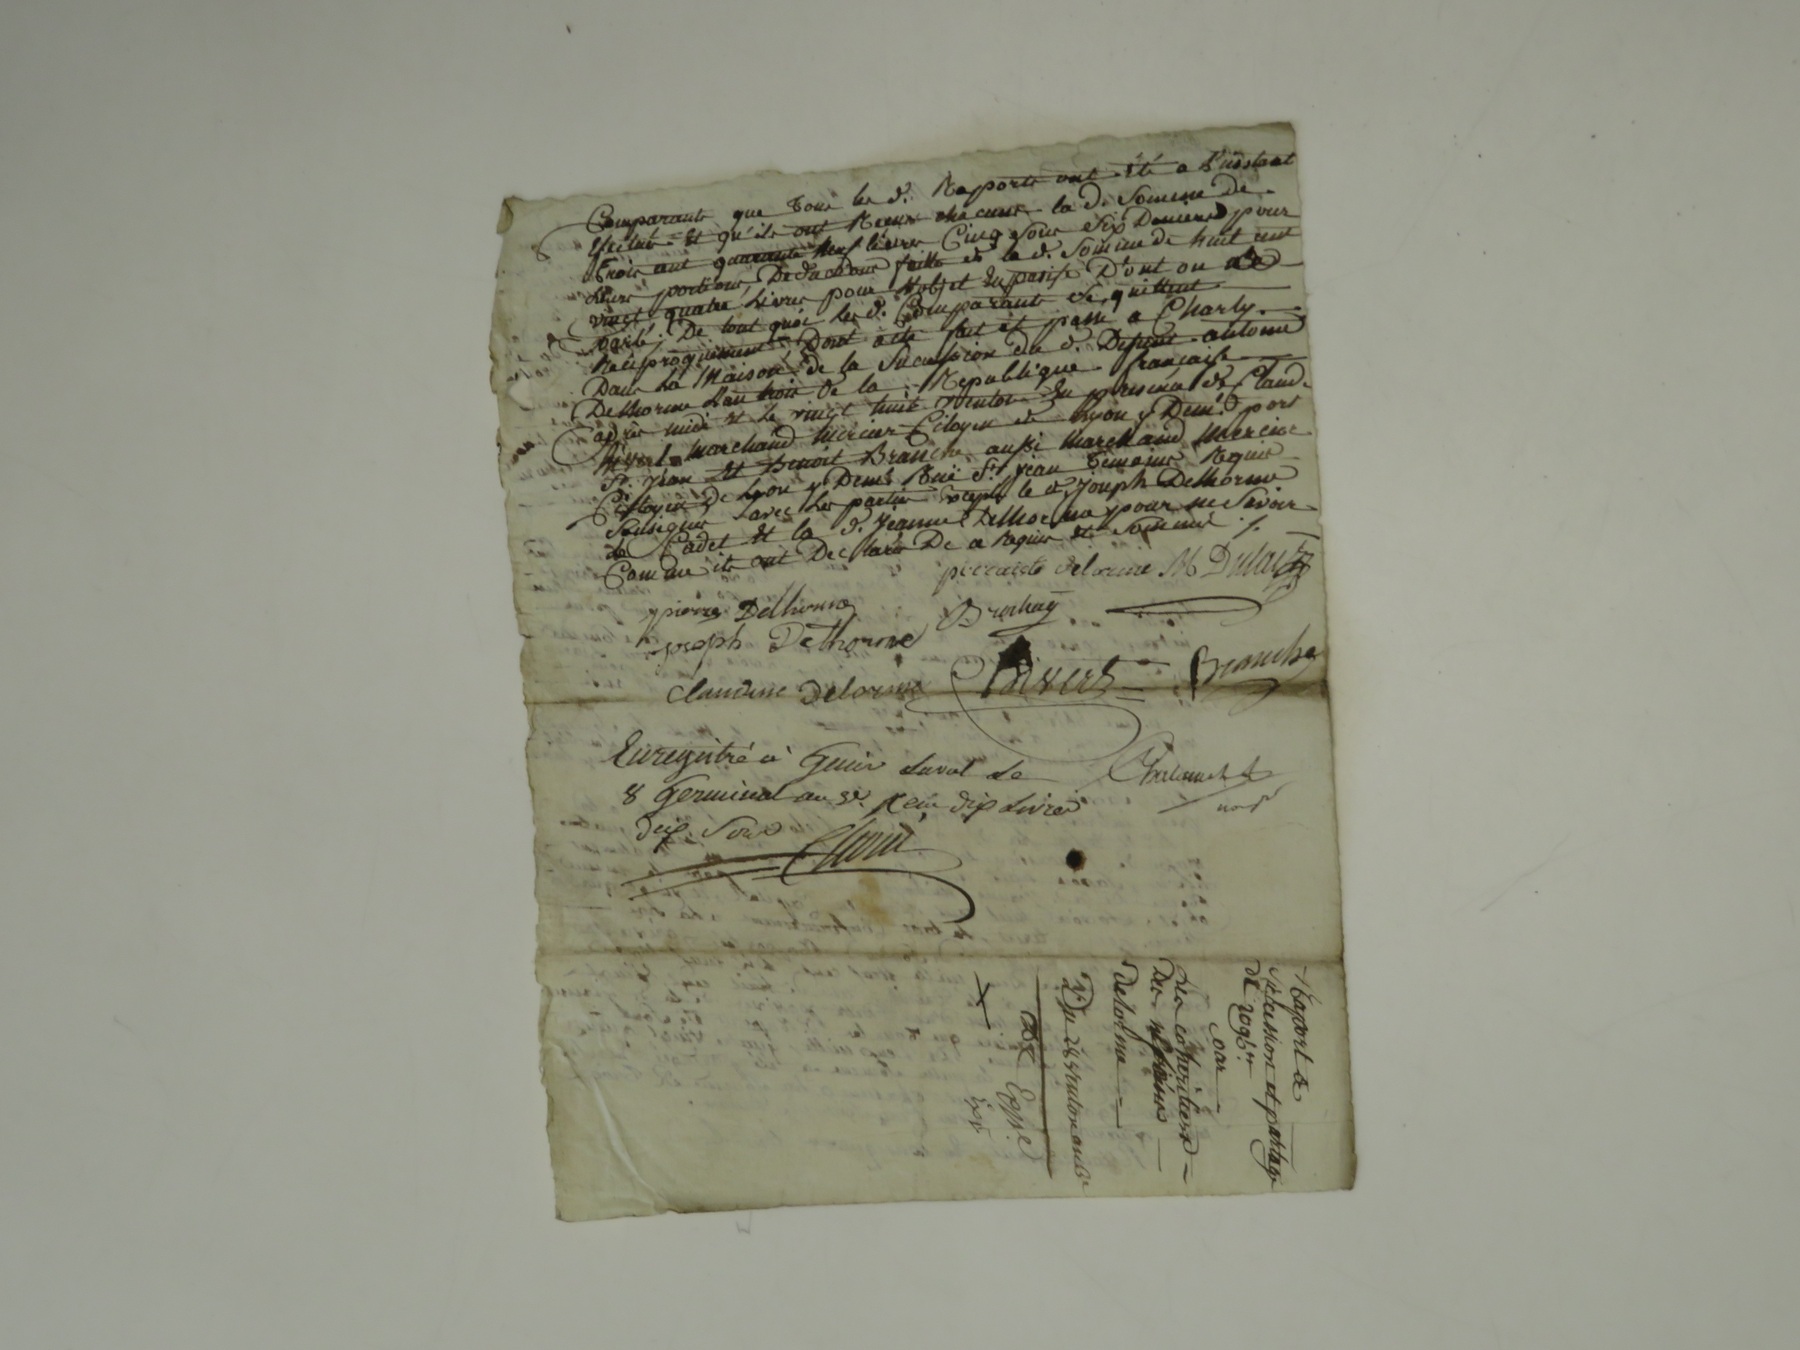 Comparants que tous les d. Rapports ont été a L'instant
Et qu'ils ont Reçus chacuns la d. Somme De
Trois cent quarante Neuf livres Cinq Sous Six Deniers pour
Leurs portions Deduction faitte de la d. Somme de huit cent
vingt quatre Livres pour l'objet Du passif D'ont on a
parlé; De tout quoi les d. Comparants Se quittent
Réciproquement Dont acte fait et passé a Charly
Dans La Maison de la Succession du d. Defunt antoine
Delhorme Lan trois De la Republique francaise
après midi et le vingt huit ventose En presence de Claude
marchand mercier Citoyen de Lyon y Demt. port
St. Jean Et Benoit Branche aussi Marchand Mercier
Citoyen de Lyon y Demt. Rue St. Jean Temoins Requis
Soussignés avec les parties excepté le d. Joseph Delhorme
Cadet Et la d. Jeanne Delhorme pour ne Savoir
Comme ils ont Declaré De ce Requis Et Sommés ./.
pierrette delorme M Dulac
pierre Delhorme
Joseph Delhorme
Claudine Delorme Branche
Enregistré à Genis Laval Le
8 Germinal an 3e. Reçu dix Livres
dix Sous
Rapport de
Succession et partage
par
Les cohéritiers
Des
Delorme
Du 28 Ventose an 3e
Expié